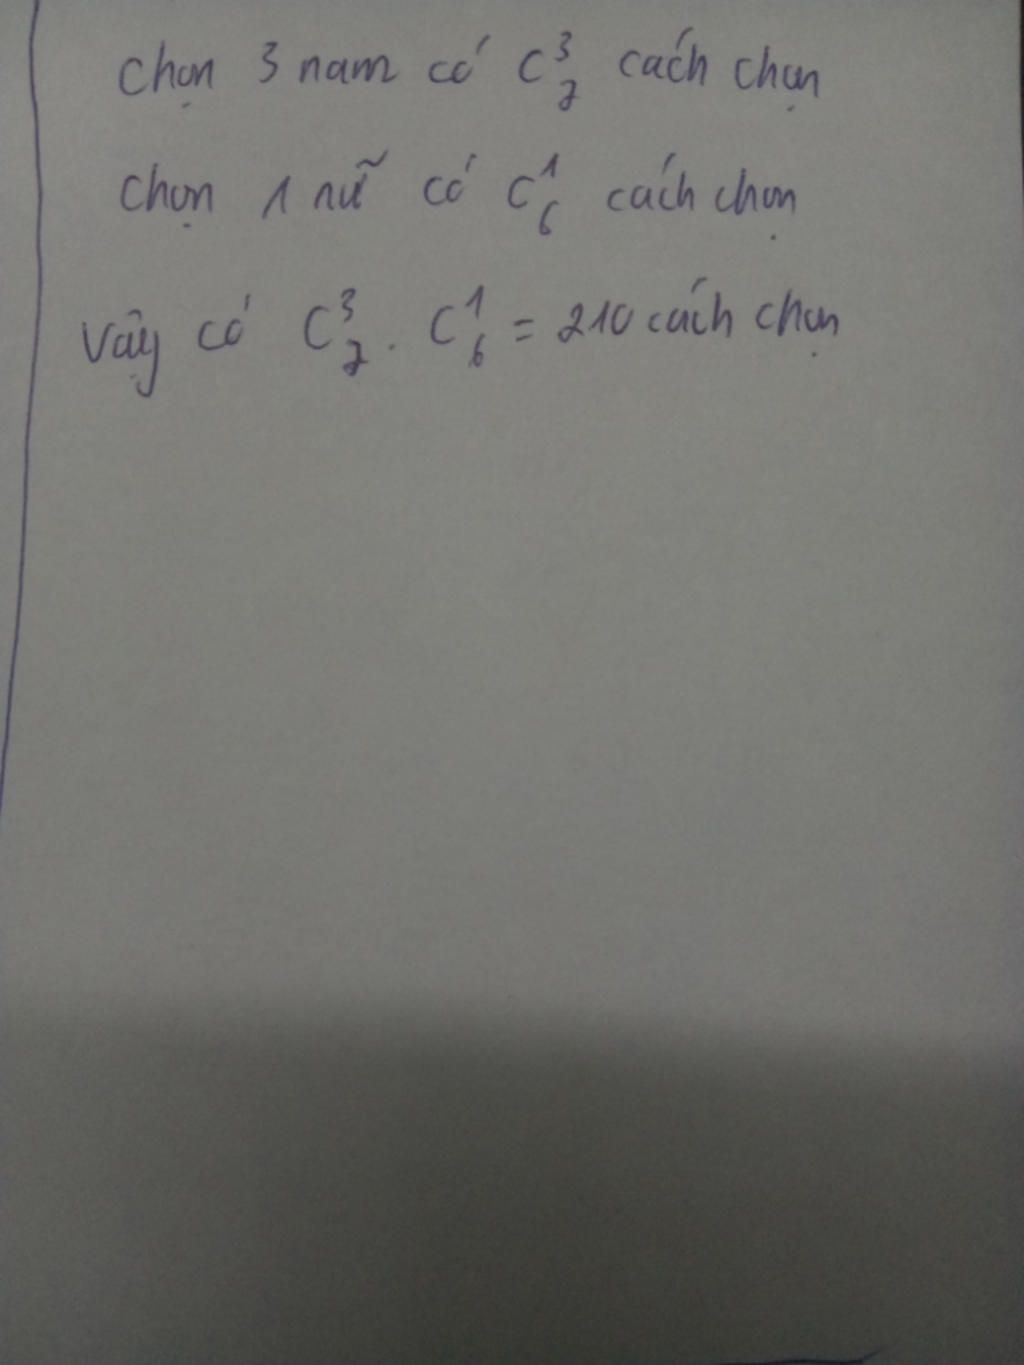 Chọn 3 nam có C³₇ cách chọn
Chọn 1 nữ có C¹₆ cách chọn
Vậy có C³₇ . C¹₆ = 210 cách chọn